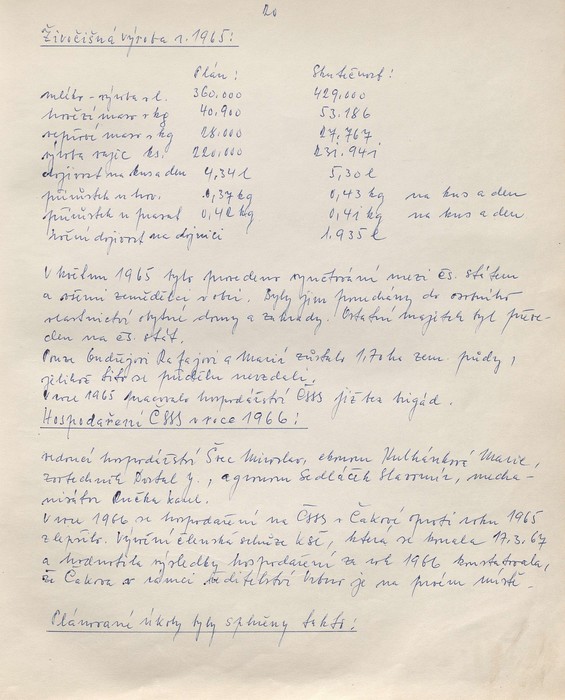 20
Živočišná výroba r. 1965:
Plán: Skutečnost:
mléko - výroba v l. 360.000 429.000
hovězí maso v kg 40.900 53.186
vepřové maso v kg 28.000 27.767
výroba vajec ks. 220.000 231.941
dojivost na kus a den 4,34 l 5,30 l
přírůstek u hov. 0,37 kg 0,43 kg na kus a den
přírůstek u prasat 0,42 kg 0,41 kg na kus a den
roční dojivost na dojnici 1.935 l
V květnu 1965 bylo provedeno vyúčtování mezi čs. státem
a všemi zemědělci v obci. Byly jim ponechány do osobního
vlastnictví obytné domy a zahrady. Ostatní majetek byl převe-
den na čs. stát.
Pouze a Marii zůstalo 1,70 ha zem. půdy,
jelikož tito se přídělu nevzdali.
V roce 1965 pracovalo hospodářství ČSSS již bez brigád.
Hospodaření ČSSS v roce 1966:
vedoucí hospodářství Švec Miroslav, ekonom Kulhánková Marie,
zootechnik J., agronom Sedláček Slavomír, mecha-
nizátor Karel.
V roce 1966 se hospodaření na ČSSS v Čakové oproti roku 1965
zlepšilo. Výroční členská schůze KSČ, která se konala 17.3.67
a hodnotila výsledky hospodaření za rok 1966 konstatovala,
že Čakova v rámci ředitelství Vrbno je na prvém místě.
Plánované úkoly byly splněny takto: